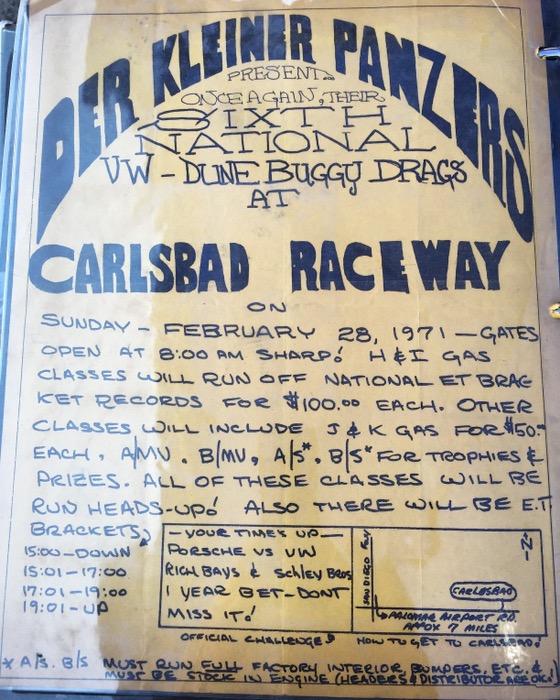 DER KLEINER PANZERS
PRESENT
ONCE AGAIN, THEIR
SIXTH
NATIONAL
VW - DUNE BUGGY DRAGS
AT
CARLSBAD RACEWAY
ON
SUNDAY - FEBRUARY 28, 1971 - GATES
OPEN AT 8:00 AM SHARP! H & I GAS
CLASSES WILL RUN OFF NATIONAL ET BRAC
KET RECORDS FOR $100.00 EACH. OTHER
CLASSES WILL INCLUDE J & K GAS FOR $50.00
EACH, A/MV, B/MV, A/S*, B/S* FOR TROPHIES &
PRIZES. ALL OF THESE CLASSES WILL BE
RUN HEADS-UP! ALSO THERE WILL BE E.T.
BRACKETS,
15:00 - DOWN
15:01 - 17:00
17:01 - 19:00
19:01 - UP
- YOUR TIMES UP -
PORSCHE VS VW
RICH BAYS & SCHLEY BROS
1 YEAR BET - DONT
MISS IT!
OFFICIAL CHALLENGE!
SAN DIEGO FWY
-N-
CARLSBAD
PALOMAR AIRPORT RD.
APPOX 7 MILES
HOW TO GET TO CARLSBAD!
* A/S. B/S MUST RUN FULL FACTORY INTERIOR, BUMPERS, ETC. &
MUST BE STOCK IN ENGINE (HEADERS & DISTRIBUTOR ARE OK.)